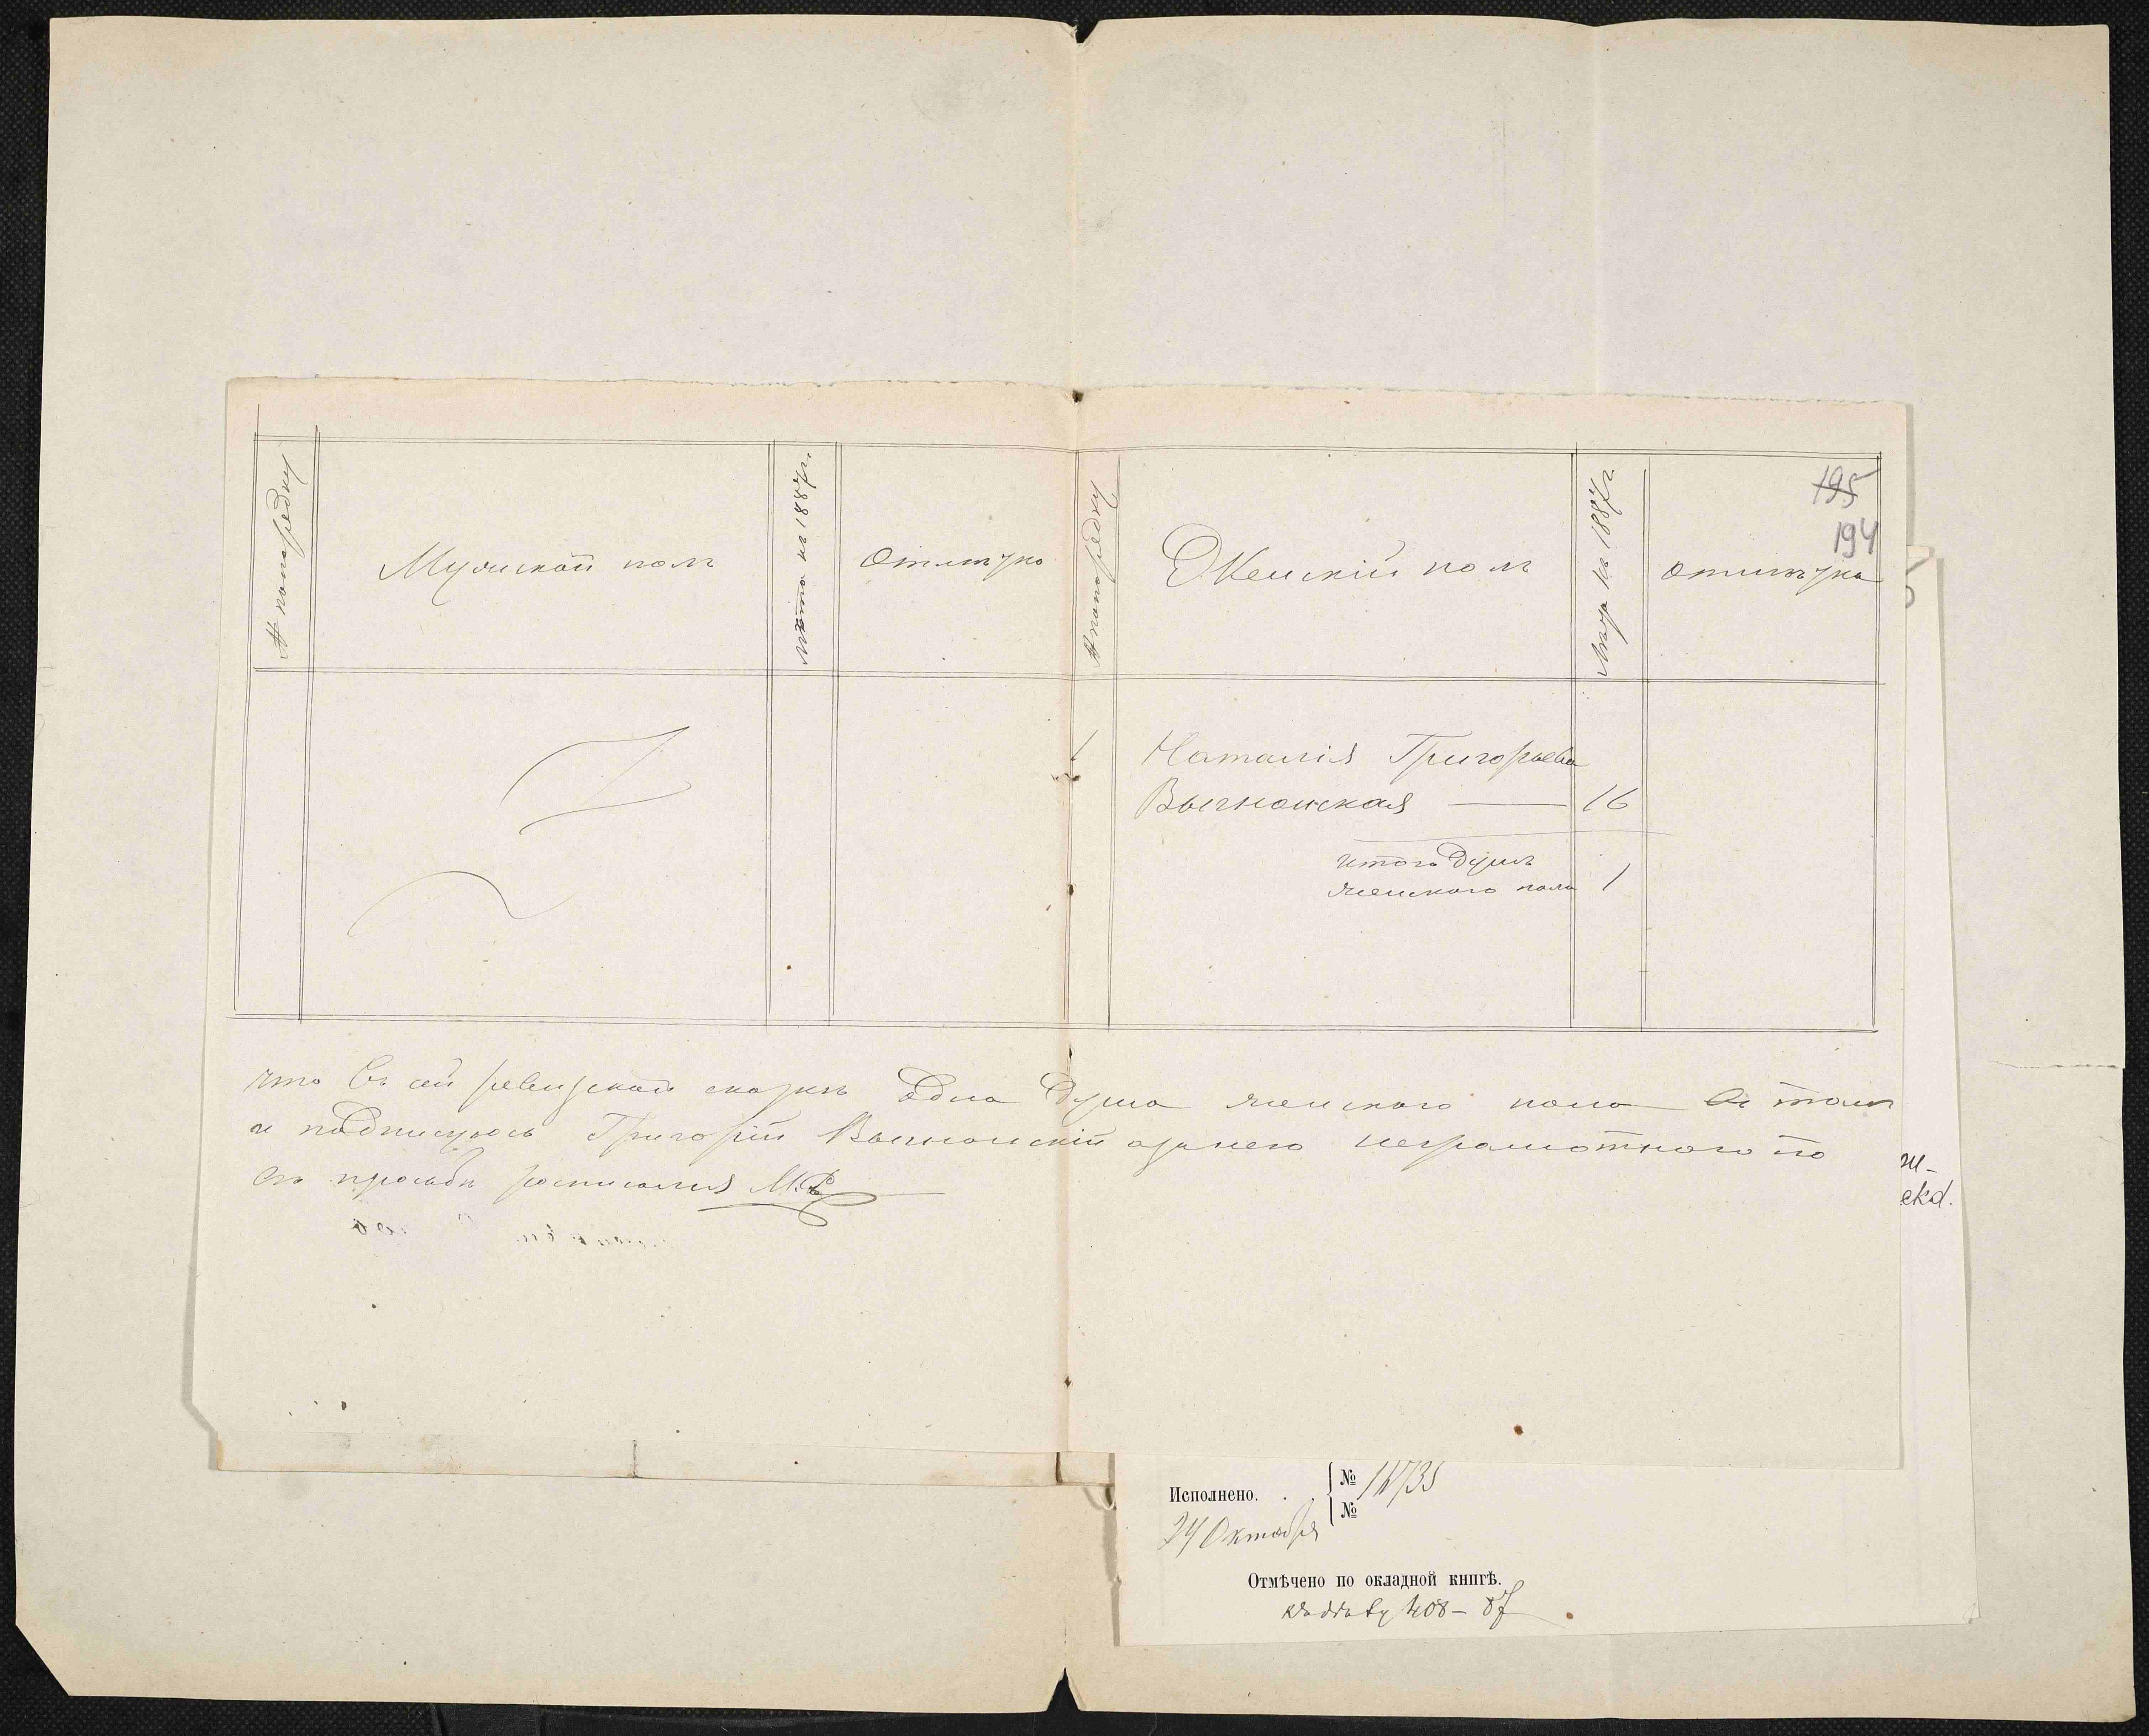 195
194
№ по порядку
Мужской полъ
Лѣта къ 1887 г.
Отмѣтка
№ по порядку
Женскій полъ
Лѣта къ 1887 г.
Отмѣтка
1
Наталія Григорьева
16
итого душъ
женского пола 1
что въ сей ревизской сказкѣ одна душа женского пола въ томъ
и подписуюсь Григорій а за него неграмотного по
его просьбѣ росписался
Исполнено. . . № 14735
№
24 Октября
Отмѣчено по окладной книгѣ.
408 - 87